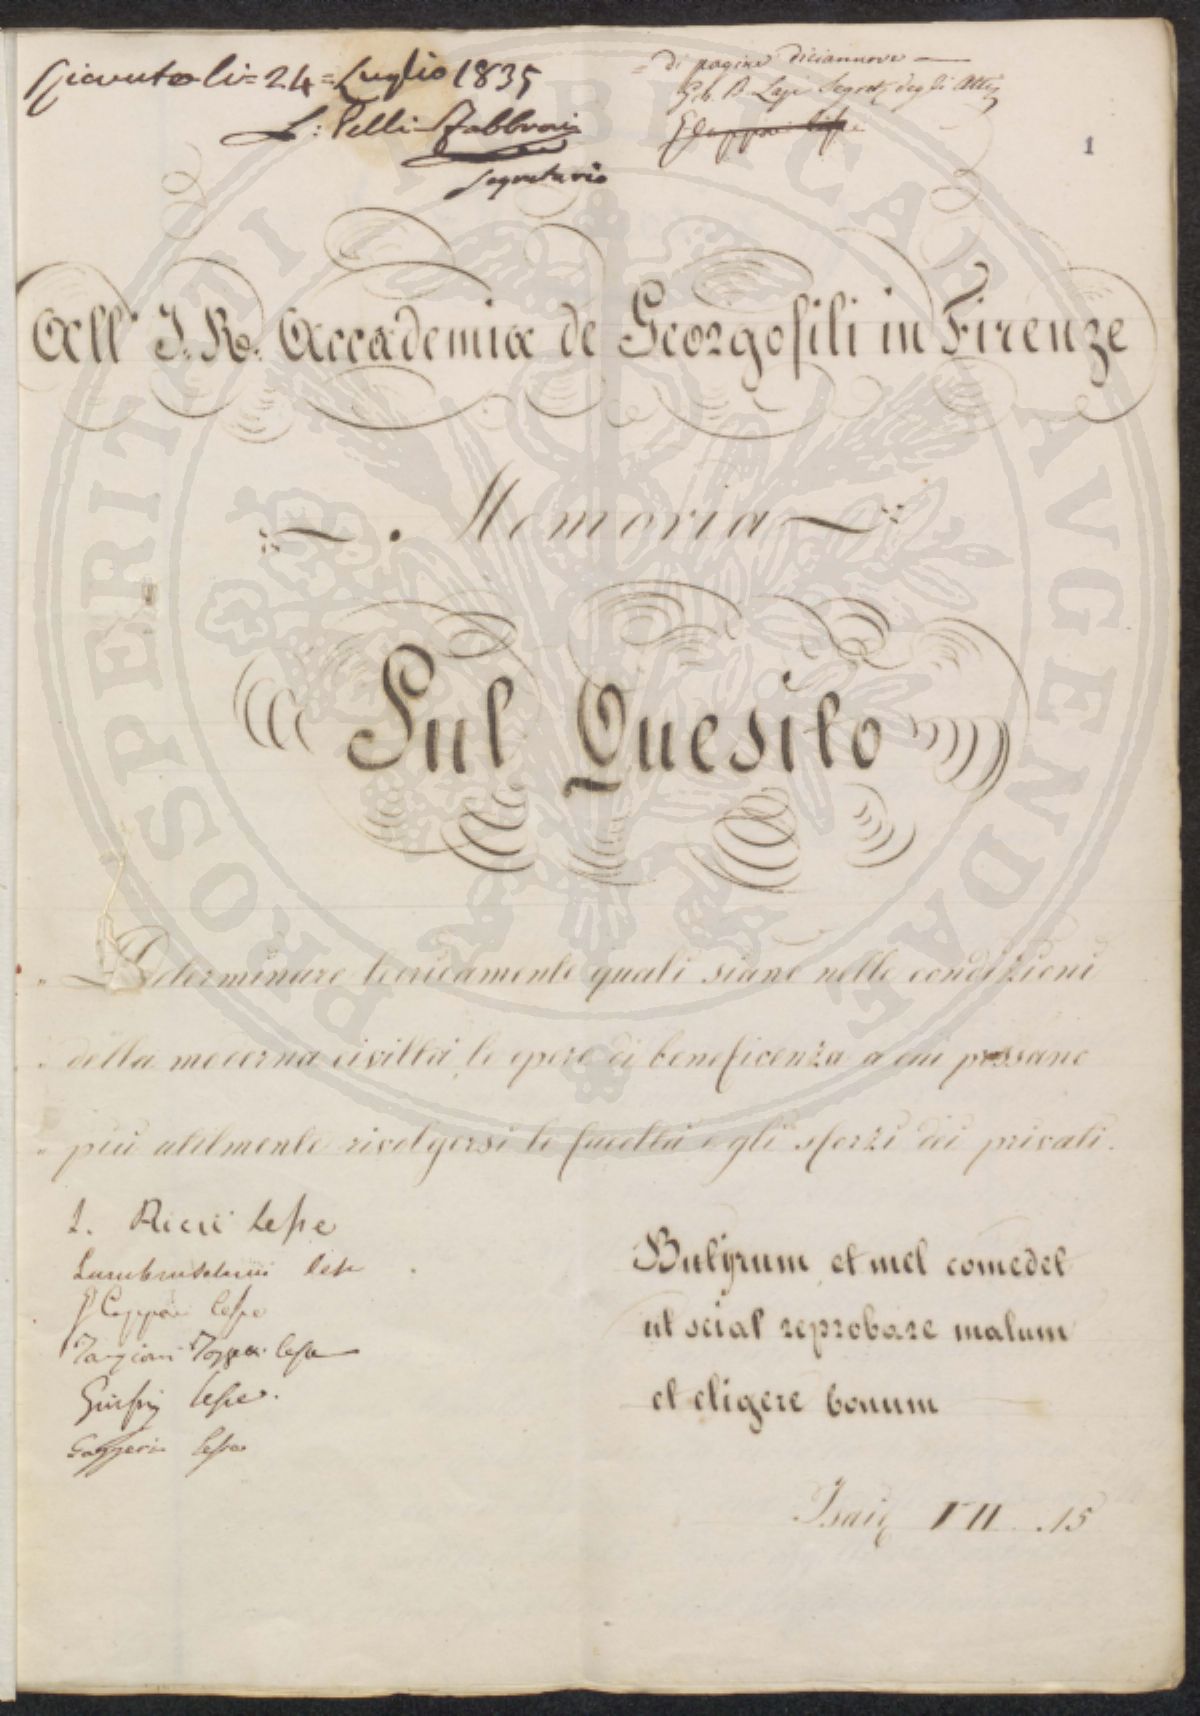 Ricevuta li = 24 = Luglio 1835
L: Pelli-Fabbroni
Segretario
= di pagine diciannove —
Segret. degli Atti
1
All' I. R. Accademia de Georgofili in Firenze
Memoria
Sul Quesito
" Determinare teoricamente quali siano nelle condizioni
" della moderna civiltà le opere di beneficenza a cui possano
" più utilmente rivolgersi le facoltà e gli sforzi dei privati.
1. Ricci lesse
Lambruschini lesse
Capponi lesse
Targioni Tozzetti lesse
lesse.
lesse
Butyrum et mel comedet
ut sciat reprobare malum
et eligere bonum
Isaie VII .15
PROSPERITATI PUBLICAE AVGENDAE